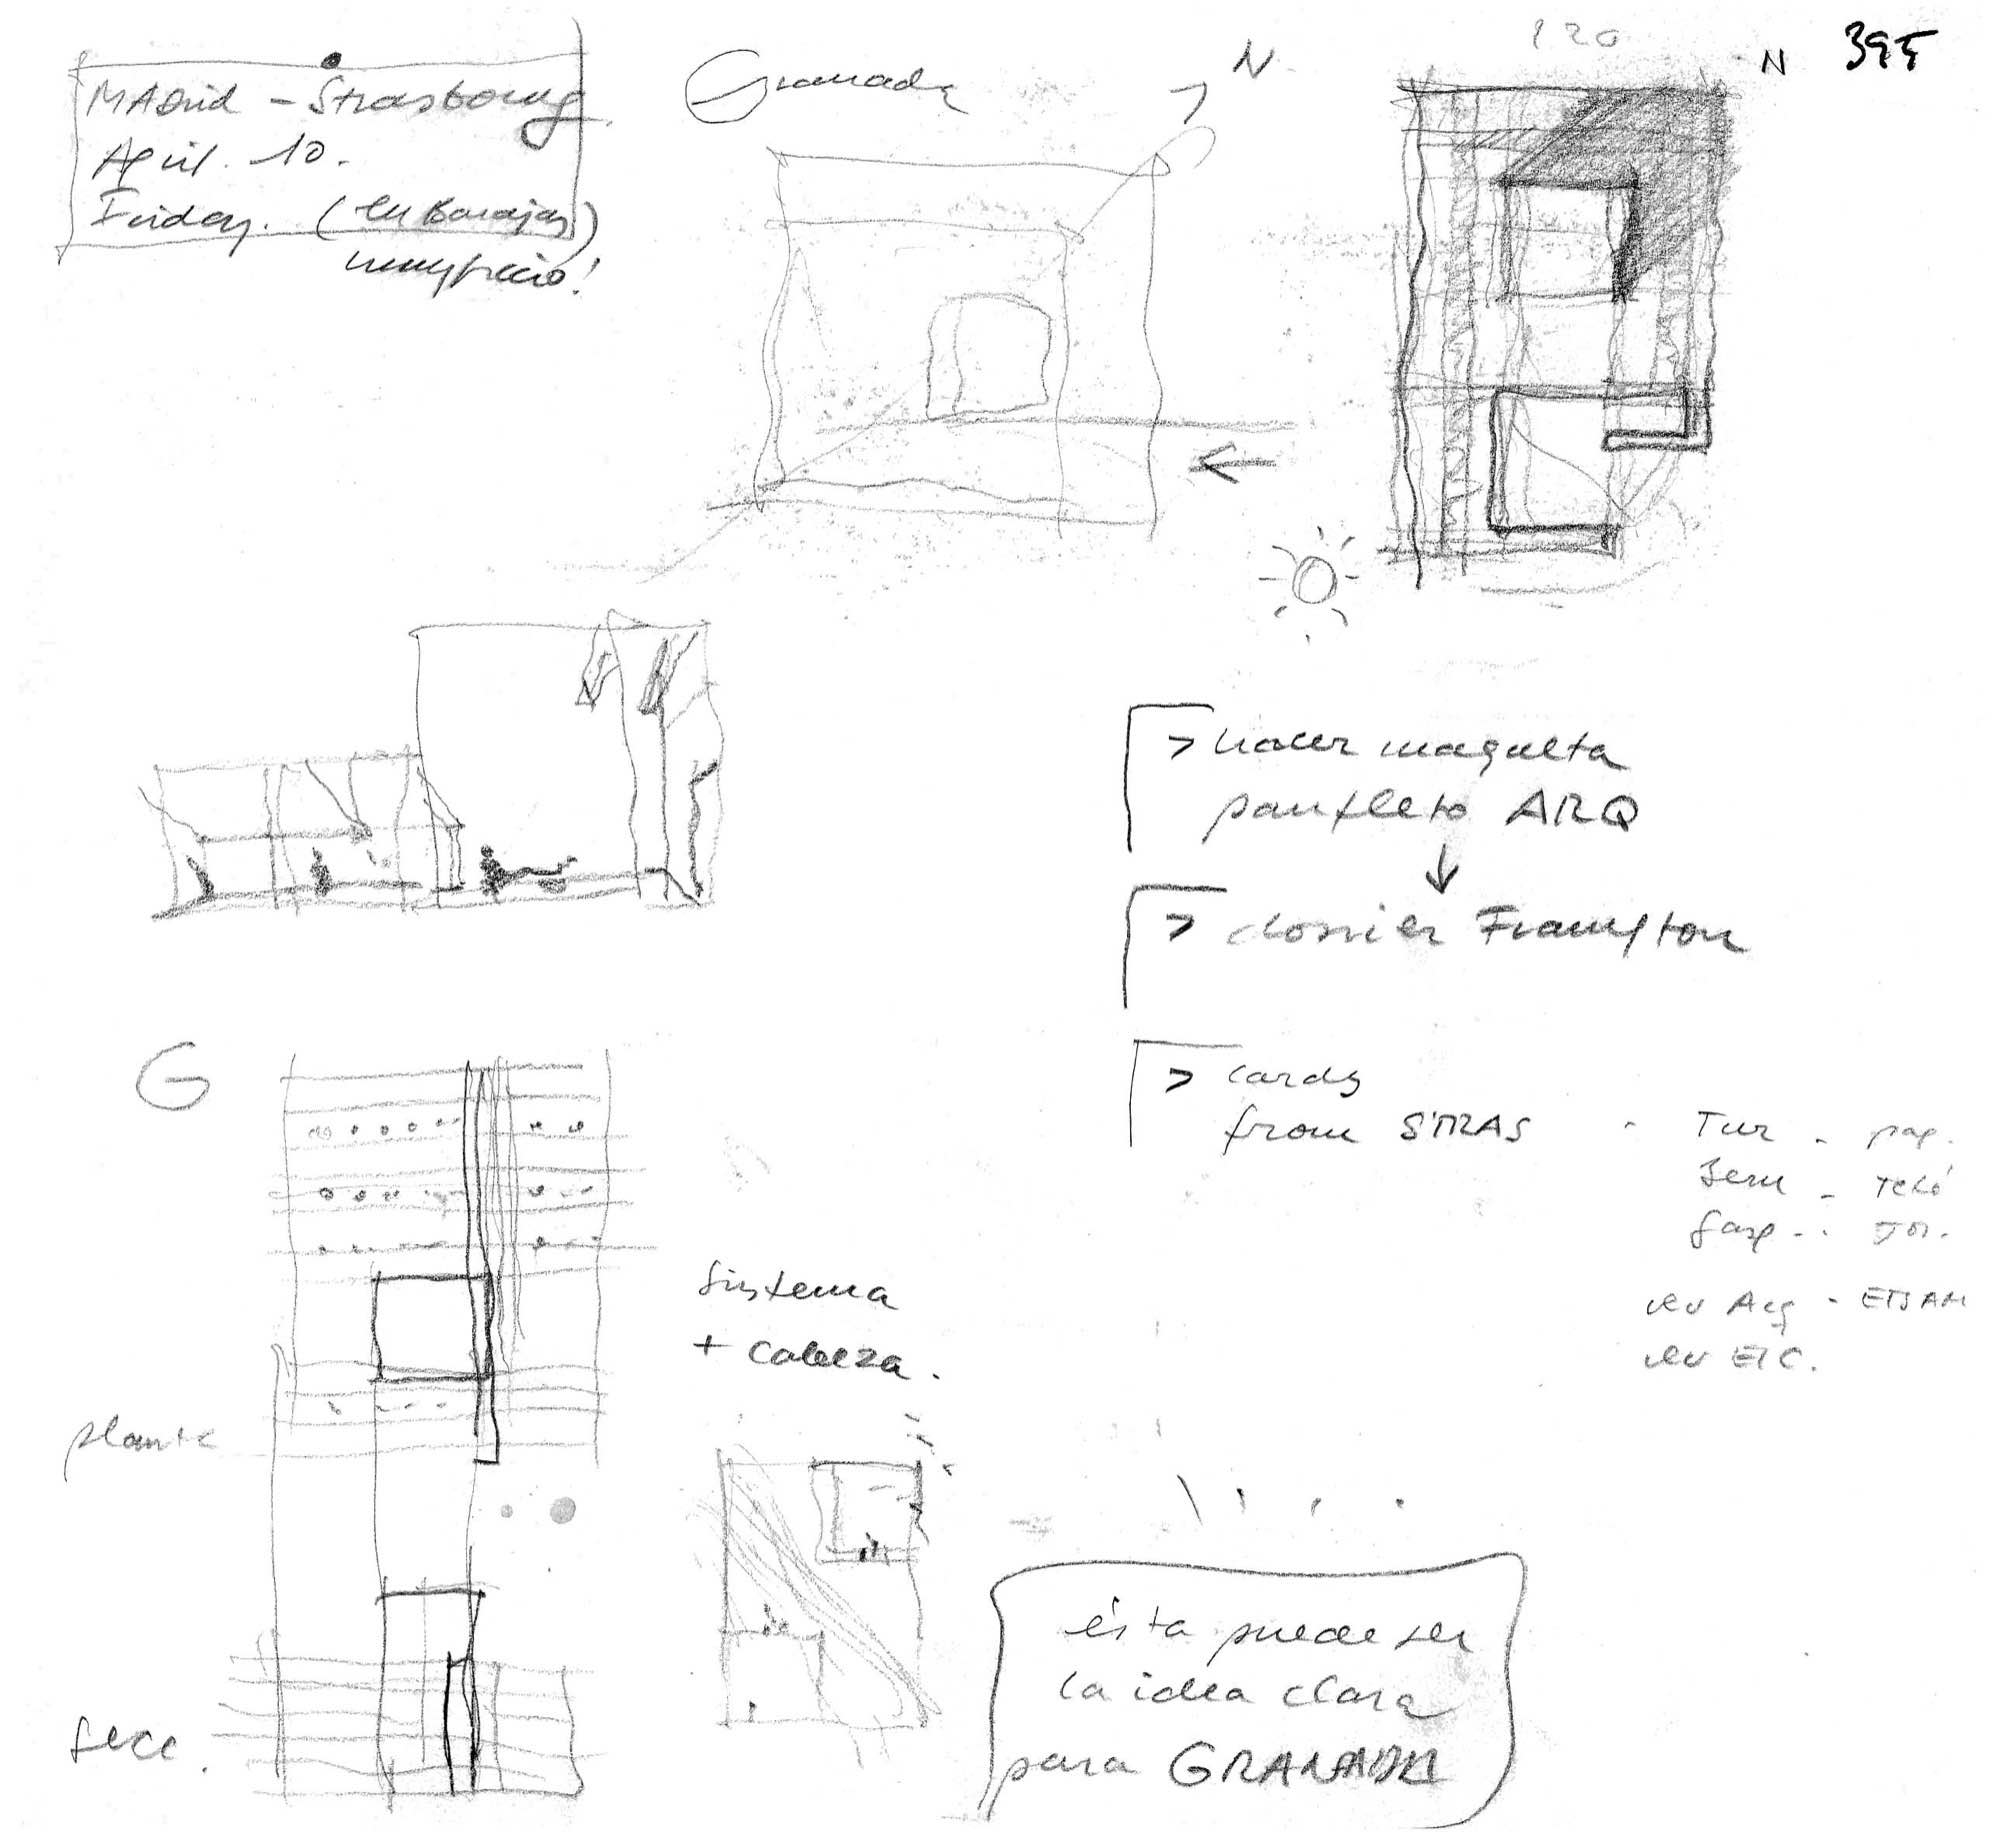 MADrid - Strasbourg
April. 10.
Friday. (en Barajas)
muy frio!
Granada
N
120
N 395
> hacer maqueta
panfleto ARQ
> dossier Frampton
> cards
from STRAS - Tur - pap.
Jeru - Teló
Gasp - 
ver Arq - ETSAM
ver ETC.
G
planta
Sistema
+ cabeza.
Secc.
ésta puede ser
la idea clara
para GRANADA